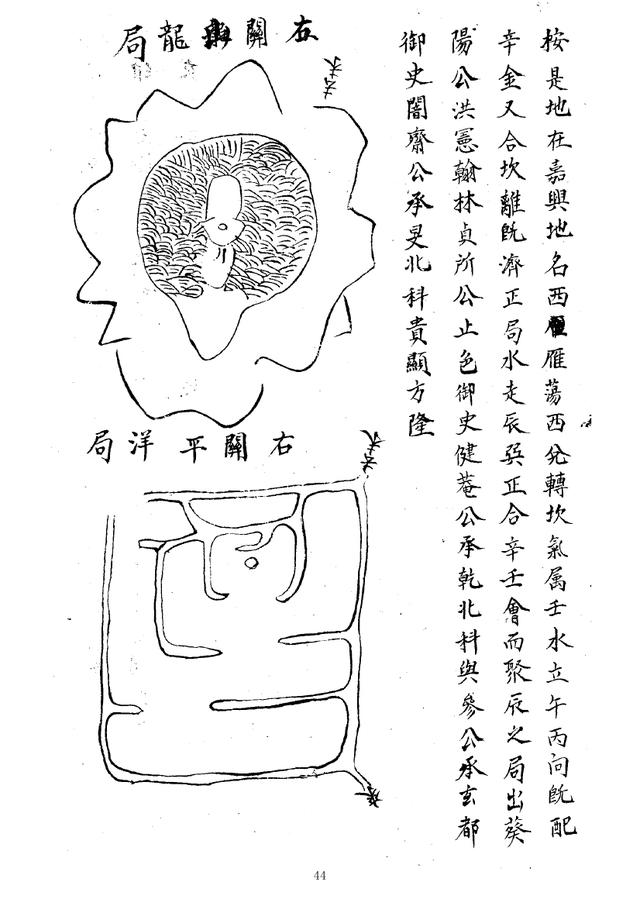 桉是地在嘉興地名西雁蕩西兌轉坎氣属壬水立午丙向既配
辛金又合坎離既濟正局水走辰巽正合辛壬會而聚辰之局出葵
陽公洪憲翰林貞所公止色御史健菴公承乾北科與參公承玄都
御史闇齋公承旻北科貴顯方隆
右關龍局
去水
右關平洋局
去水
44